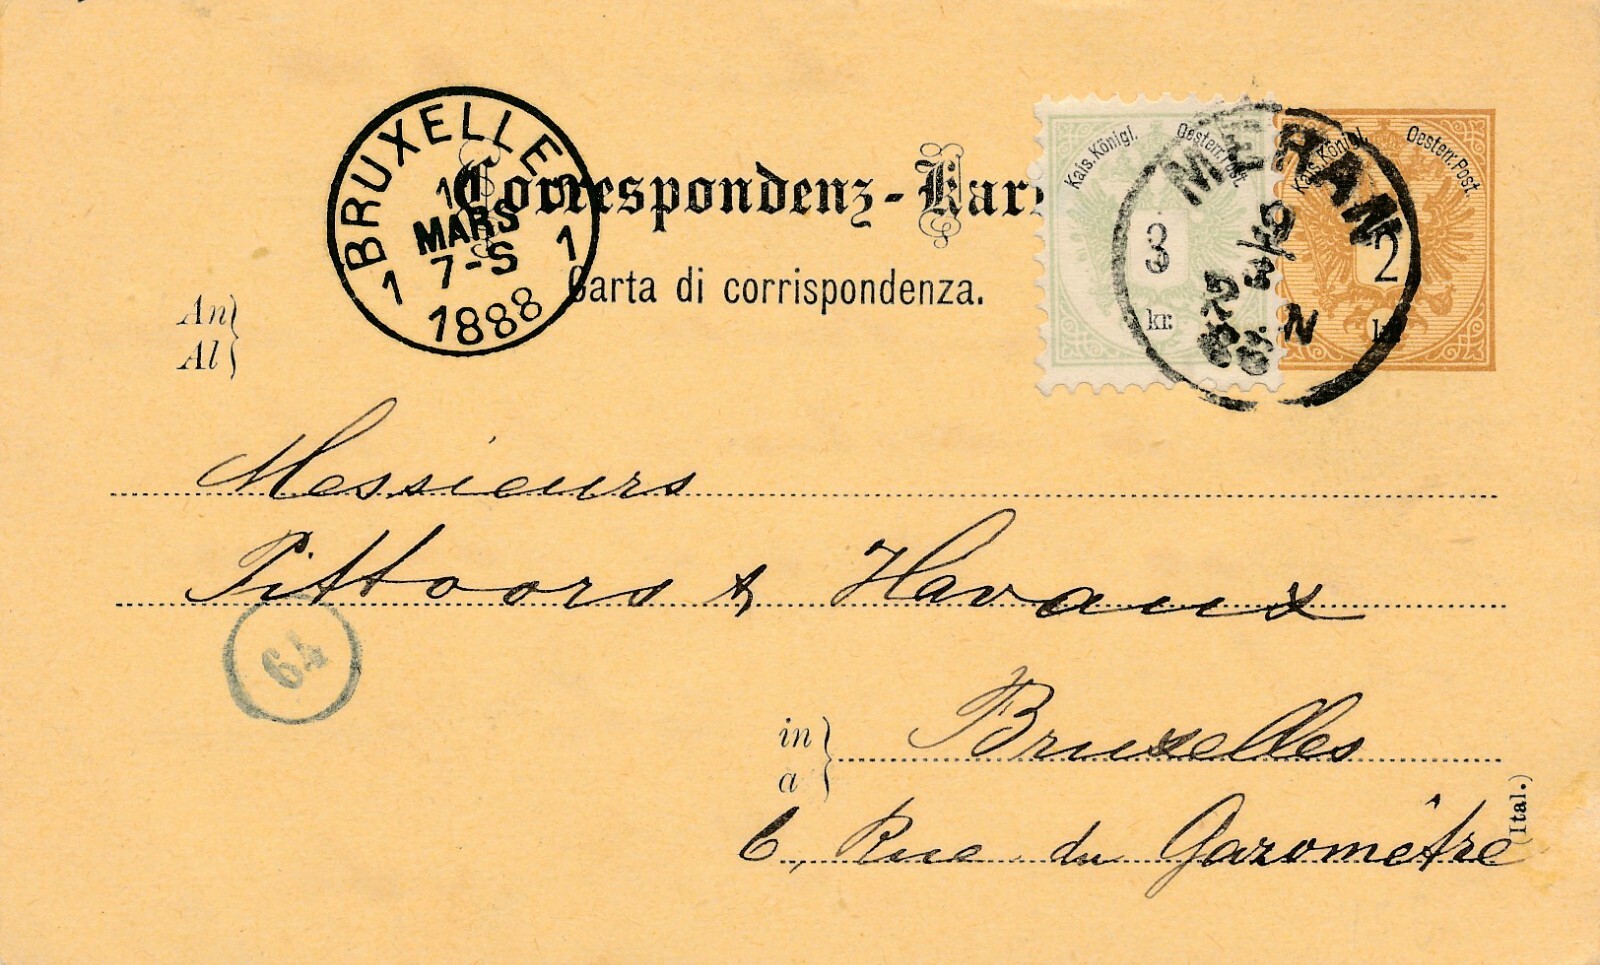 Correspondenz-Kar
Carta di corrispondenza.
BRUXELLES
MARS
7-S
1 1
1888
Kais. Königl. Oesterr. Post.
3
kr.
Kais. Königl. Oesterr. Post.
2
MERAN
9/3
N
An
Al
Messieurs
Pittoors & Havaux
64
in
a
Bruxelles
6, Rue du Gazomètre
(Ital.)